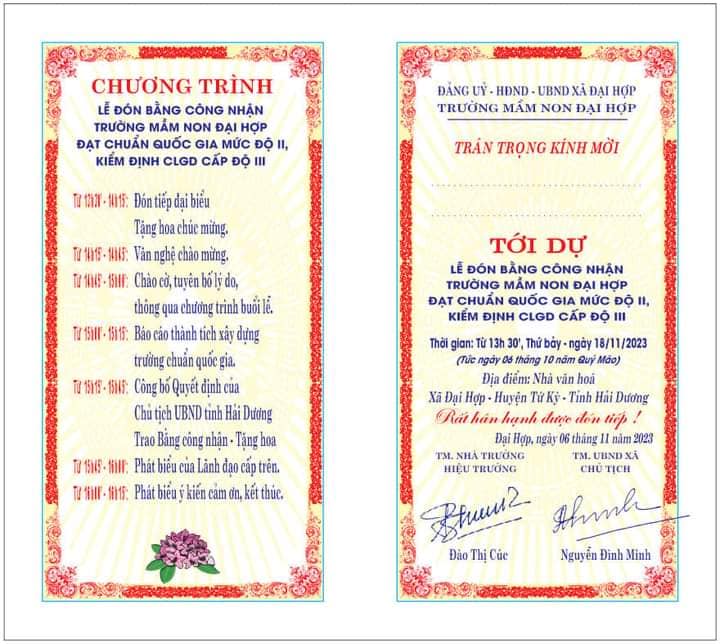 CHƯƠNG TRÌNH
LỄ ĐÓN BẰNG CÔNG NHẬN
TRƯỜNG MẦM NON ĐẠI HỢP
ĐẠT CHUẨN QUỐC GIA MỨC ĐỘ II,
KIỂM ĐỊNH CLGD CẤP ĐỘ III
Từ 13h30' - 14h15': Đón tiếp đại biểu
Tặng hoa chúc mừng.
Từ 14h15' - 14h45': Văn nghệ chào mừng.
Từ 14h45' - 15h00': Chào cờ, tuyên bố lý do,
thông qua chương trình buổi lễ.
Từ 15h00' - 15h15': Báo cáo thành tích xây dựng
trường chuẩn quốc gia.
Từ 15h15' - 15h45': Công bố Quyết định của
Chủ tịch UBND tỉnh Hải Dương
Trao Bằng công nhận - Tặng hoa
Từ 15h45' - 16h00': Phát biểu của Lãnh đạo cấp trên.
Từ 16h00' - 16h15': Phát biểu ý kiến cảm ơn, kết thúc.
ĐẢNG UỶ - HĐND - UBND XÃ ĐẠI HỢP
TRƯỜNG MẦM NON ĐẠI HỢP
TRÂN TRỌNG KÍNH MỜI
TỚI DỰ
LỄ ĐÓN BẰNG CÔNG NHẬN
TRƯỜNG MẦM NON ĐẠI HỢP
ĐẠT CHUẨN QUỐC GIA MỨC ĐỘ II,
KIỂM ĐỊNH CLGD CẤP ĐỘ III
Thời gian: Từ 13h 30', Thứ bảy - ngày 18/11/2023
(Tức ngày 06 tháng 10 năm Quý Mão)
Địa điểm: Nhà văn hoá
Xã Đại Hợp - Huyện Tứ Kỳ - Tỉnh Hải Dương
Rất hân hạnh được đón tiếp !
Đại Hợp, ngày 06 tháng 11 năm 2023
TM. NHÀ TRƯỜNG
HIỆU TRƯỞNG
TM. UBND XÃ
CHỦ TỊCH
Đào Thị Cúc
Nguyễn Đình Minh